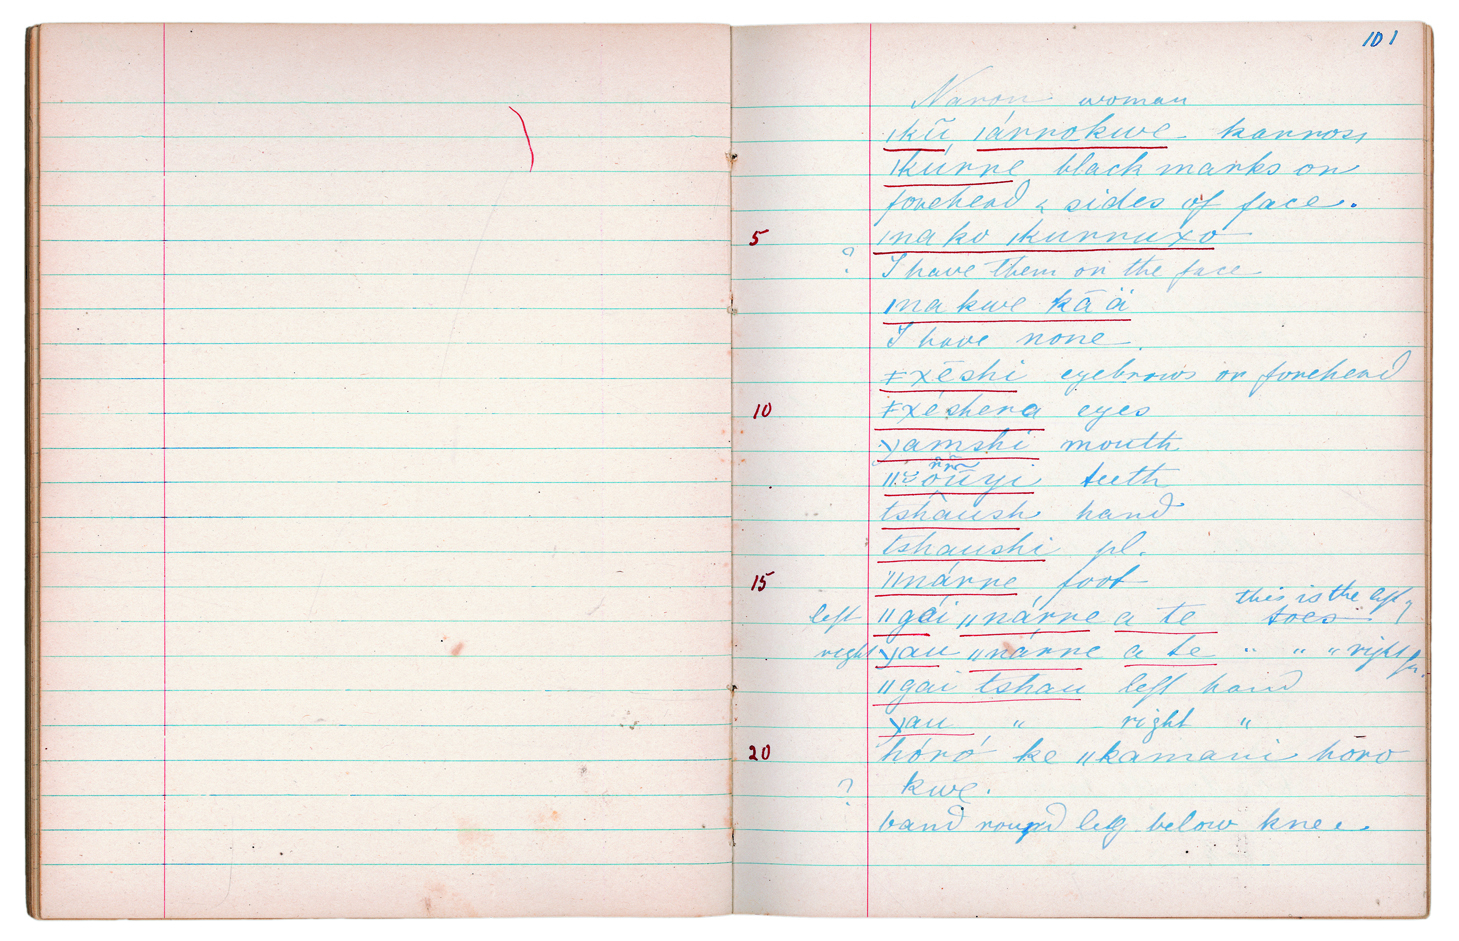 101
Naron woman
ǀkũ ǀárrokwe karross
ǀkúrre black marks on
forehead & sides of face.
5 ǀna ko ǀkurruxo
? I have them on the face
ǀna kwe kā ä
I have none.
ǂxēshi eyebrows or forehead
10 ǂxéshera eyes
yamshi mouth
teeth
tshàush hand
tshaushi pl.
15 ǁnárre foot
this is the left
left ǁgái ǁnárre a te toes
right yau ǁnárre a te " " " right
ǁgai tshau left hand
yau " right "
20 hóró ke ǁkamani hōro
? kwe.
band round leg below knee.